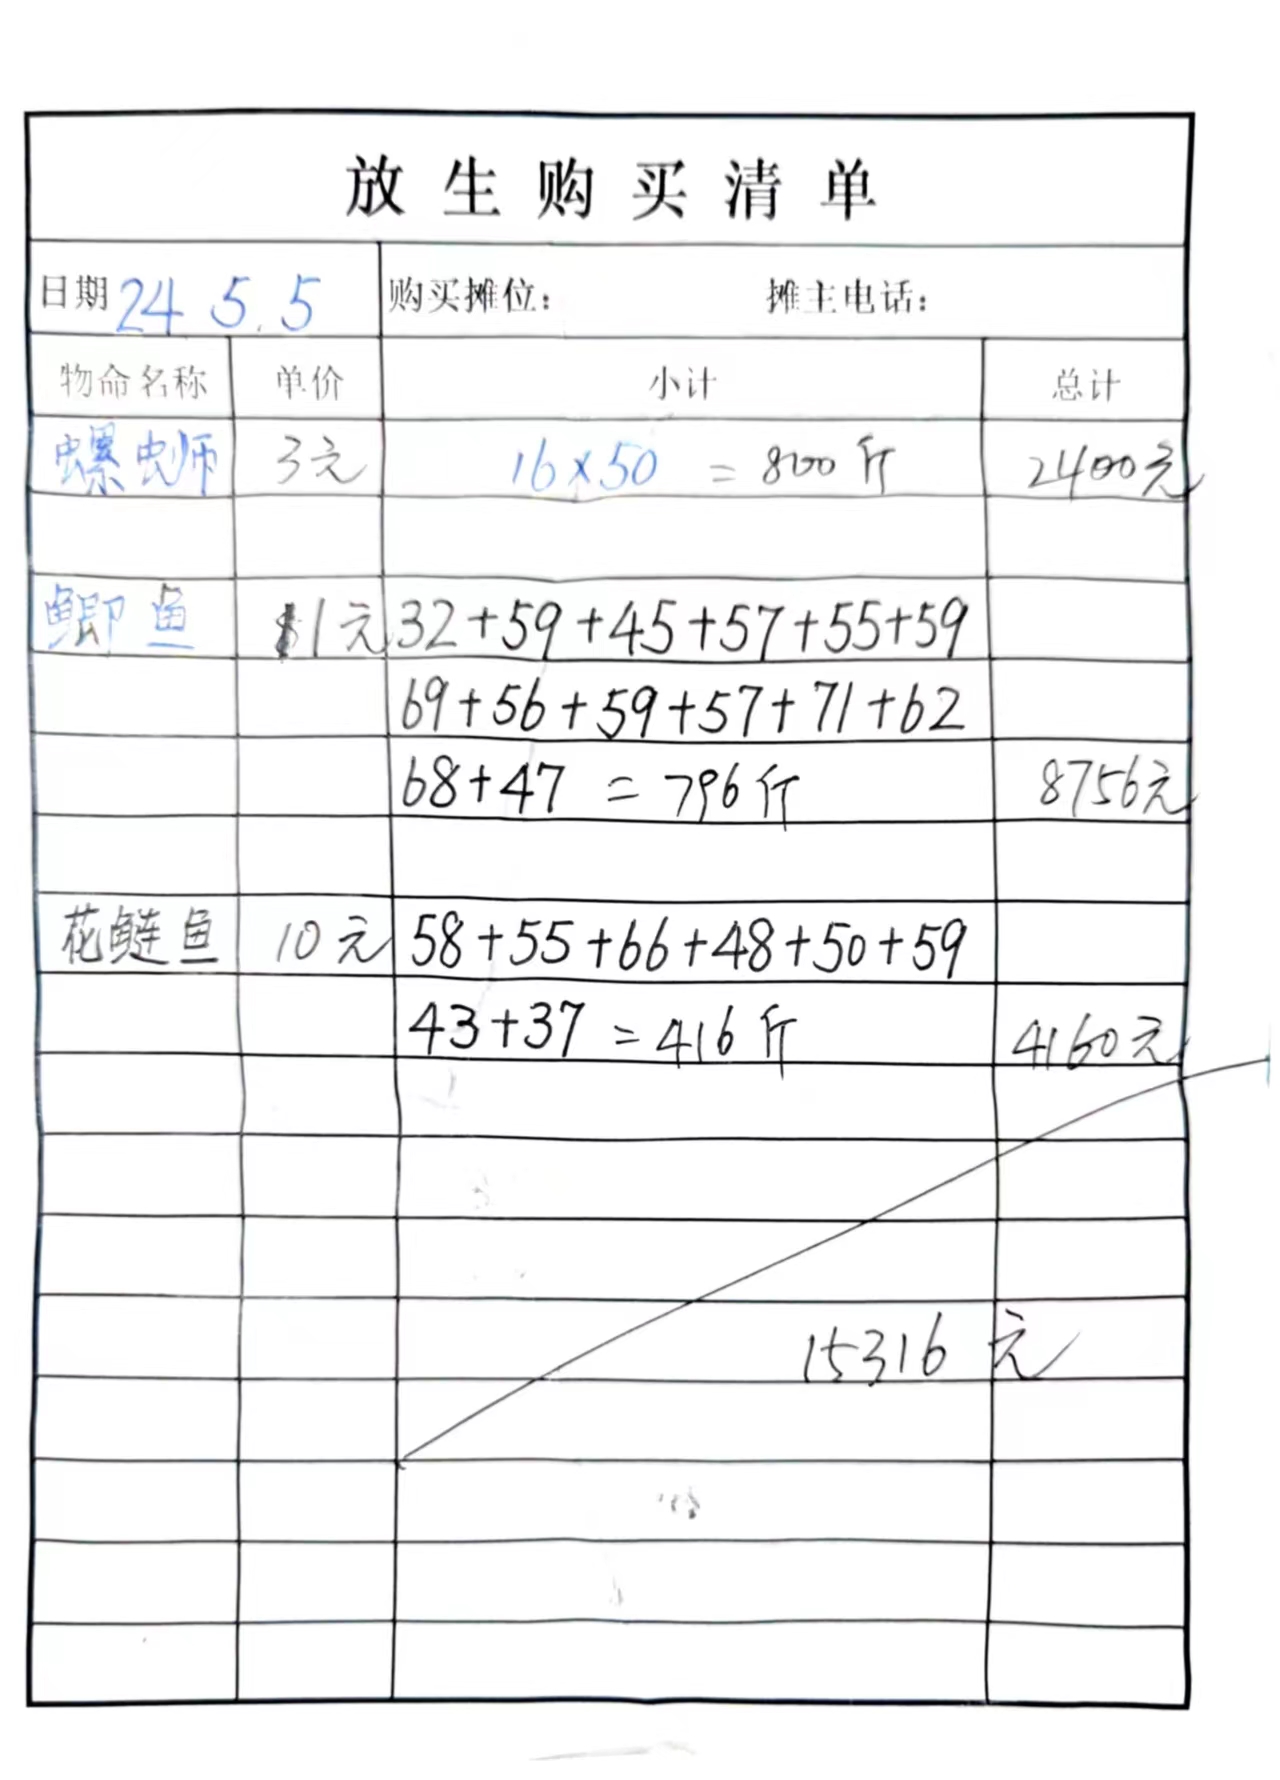 放生购买清单
日期 24 5.5 购买摊位： 摊主电话：
物命名称 单价 小计 总计
螺蛳 3元 16×50 = 800斤 2400元
鲫鱼 11元 32+59+45+57+55+59
69+56+59+57+71+62
68+47 = 796斤 8756元
花鲢鱼 10元 58+55+66+48+50+59
43+37 = 416斤 4160元
15316元